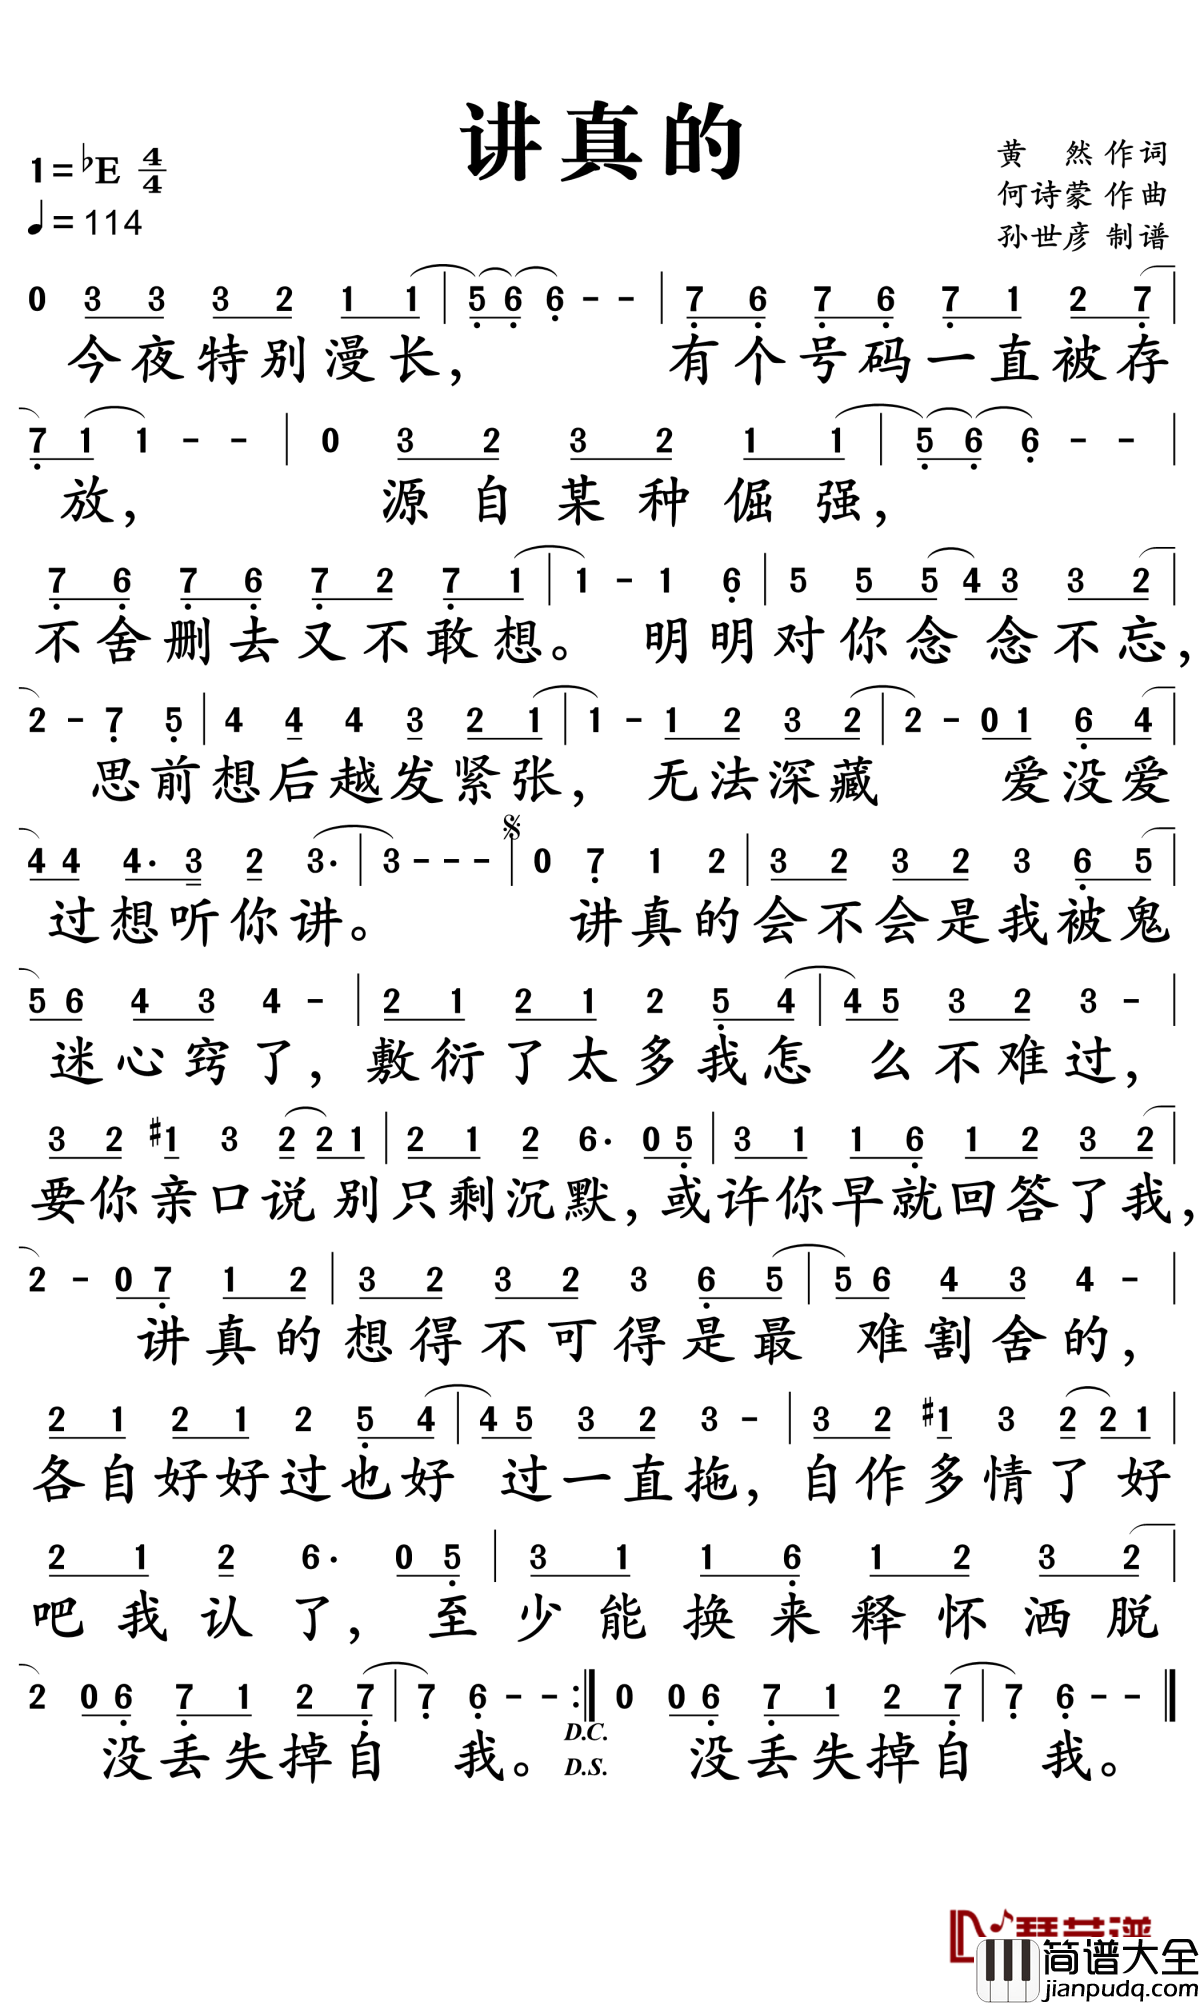 讲真的
1=♭E 4/4
♩=114
黄 然 作词
何诗蒙 作曲
孙世彦 制谱
0 3 3 3 2 1 1 | 5 6 6 - - | 7 6 7 6 7 1 2 7 |
今夜特别漫长， 有个号码一直被存
7 1 1 - - | 0 3 2 3 2 1 1 | 5 6 6 - - |
放， 源自某种倔强，
7 6 7 6 7 2 7 1 | 1 - 1 6 | 5 5 5 4 3 3 2 |
不舍删去又不敢想。 明明对你念 念不忘，
2 - 7 5 | 4 4 4 3 2 1 | 1 - 1 2 3 2 | 2 - 0 1 6 4 |
思前想后越发紧张， 无法深藏 爱没爱
4 4 4· 3 2 3· | 3 - - - | 0 7 1 2 | 3 2 3 2 3 6 5 |
过想听你讲。 讲真的会不会是我被鬼
5 6 4 3 4 - | 2 1 2 1 2 5 4 | 4 5 3 2 3 - |
迷心窍了， 敷衍了太多我怎 么不难过，
3 2 #1 3 2 2 1 | 2 1 2 6· 0 5 | 3 1 1 6 1 2 3 2 |
要你亲口说别只剩沉默，或许你早就回答了我，
2 - 0 7 1 2 | 3 2 3 2 3 6 5 | 5 6 4 3 4 - |
讲真的想得不可得是最 难割舍的，
2 1 2 1 2 5 4 | 4 5 3 2 3 - | 3 2 #1 3 2 2 1 |
各自好好过也好 过一直拖，自作多情了好
2 1 2 6· 0 5 | 3 1 1 6 1 2 3 2 |
吧我认了， 至少能换来释怀洒脱
2 0 6 7 1 2 7 | 7 6 - - :| 0 0 6 7 1 2 7 | 7 6 - - |
没丢失掉自 我。 没丢失掉自 我。
D.C.
D.S.
简谱大全
jianpudq.com